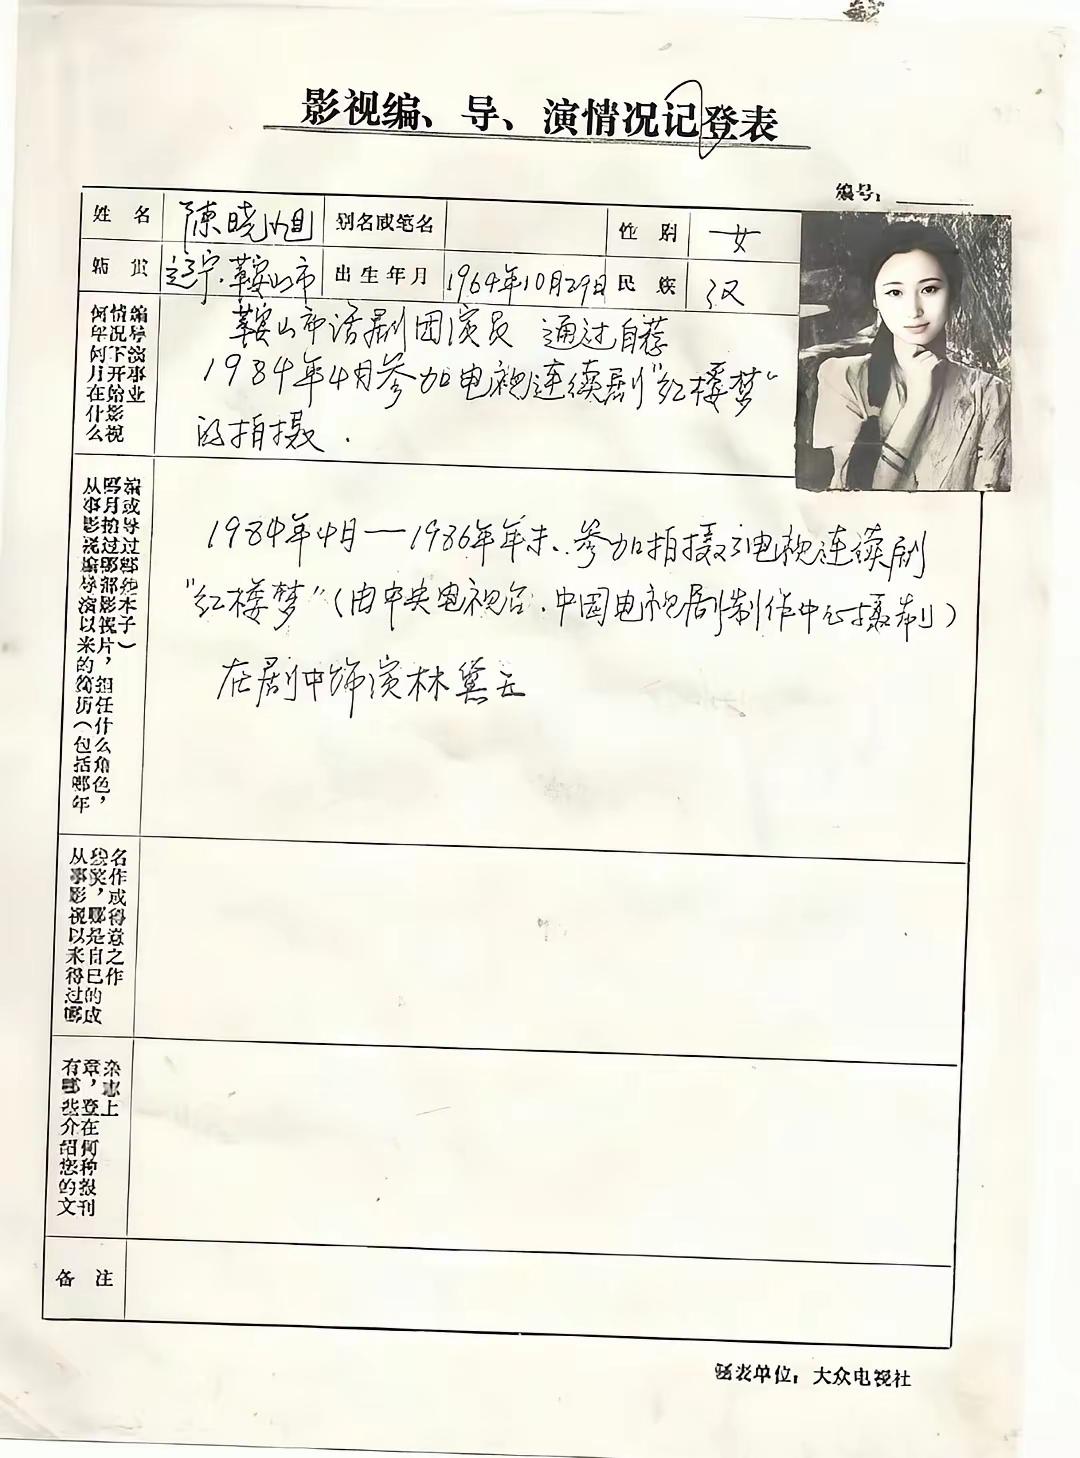 影视编、导、演情况记登表
编号：
姓名 陈晓旭 别名或笔名 性别 女
籍贯 辽宁.鞍山市 出生年月 1964年10月29日 民族 汉
何年何月在什么
情况下开始影视
编导演事业
鞍山市话剧团演员 通过自荐
1984年4月参加电视连续剧“红楼梦”
的拍摄.
从事影视编导演以来的简历（包括哪年
哪月拍过哪部影视片，担任什么角色，
编或导过哪些本子）
1984年4月—1986年年末..参加拍摄了电视连续剧
“红楼梦”（由中央电视台.中国电视剧制作中心摄制）
在剧中饰演林黛玉
从事影视以来得过哪
些奖，哪是自己的成
名作或得意之作
有哪些介绍您的文
章，登在何种报刊
杂志上
备注
制表单位：大众电视社